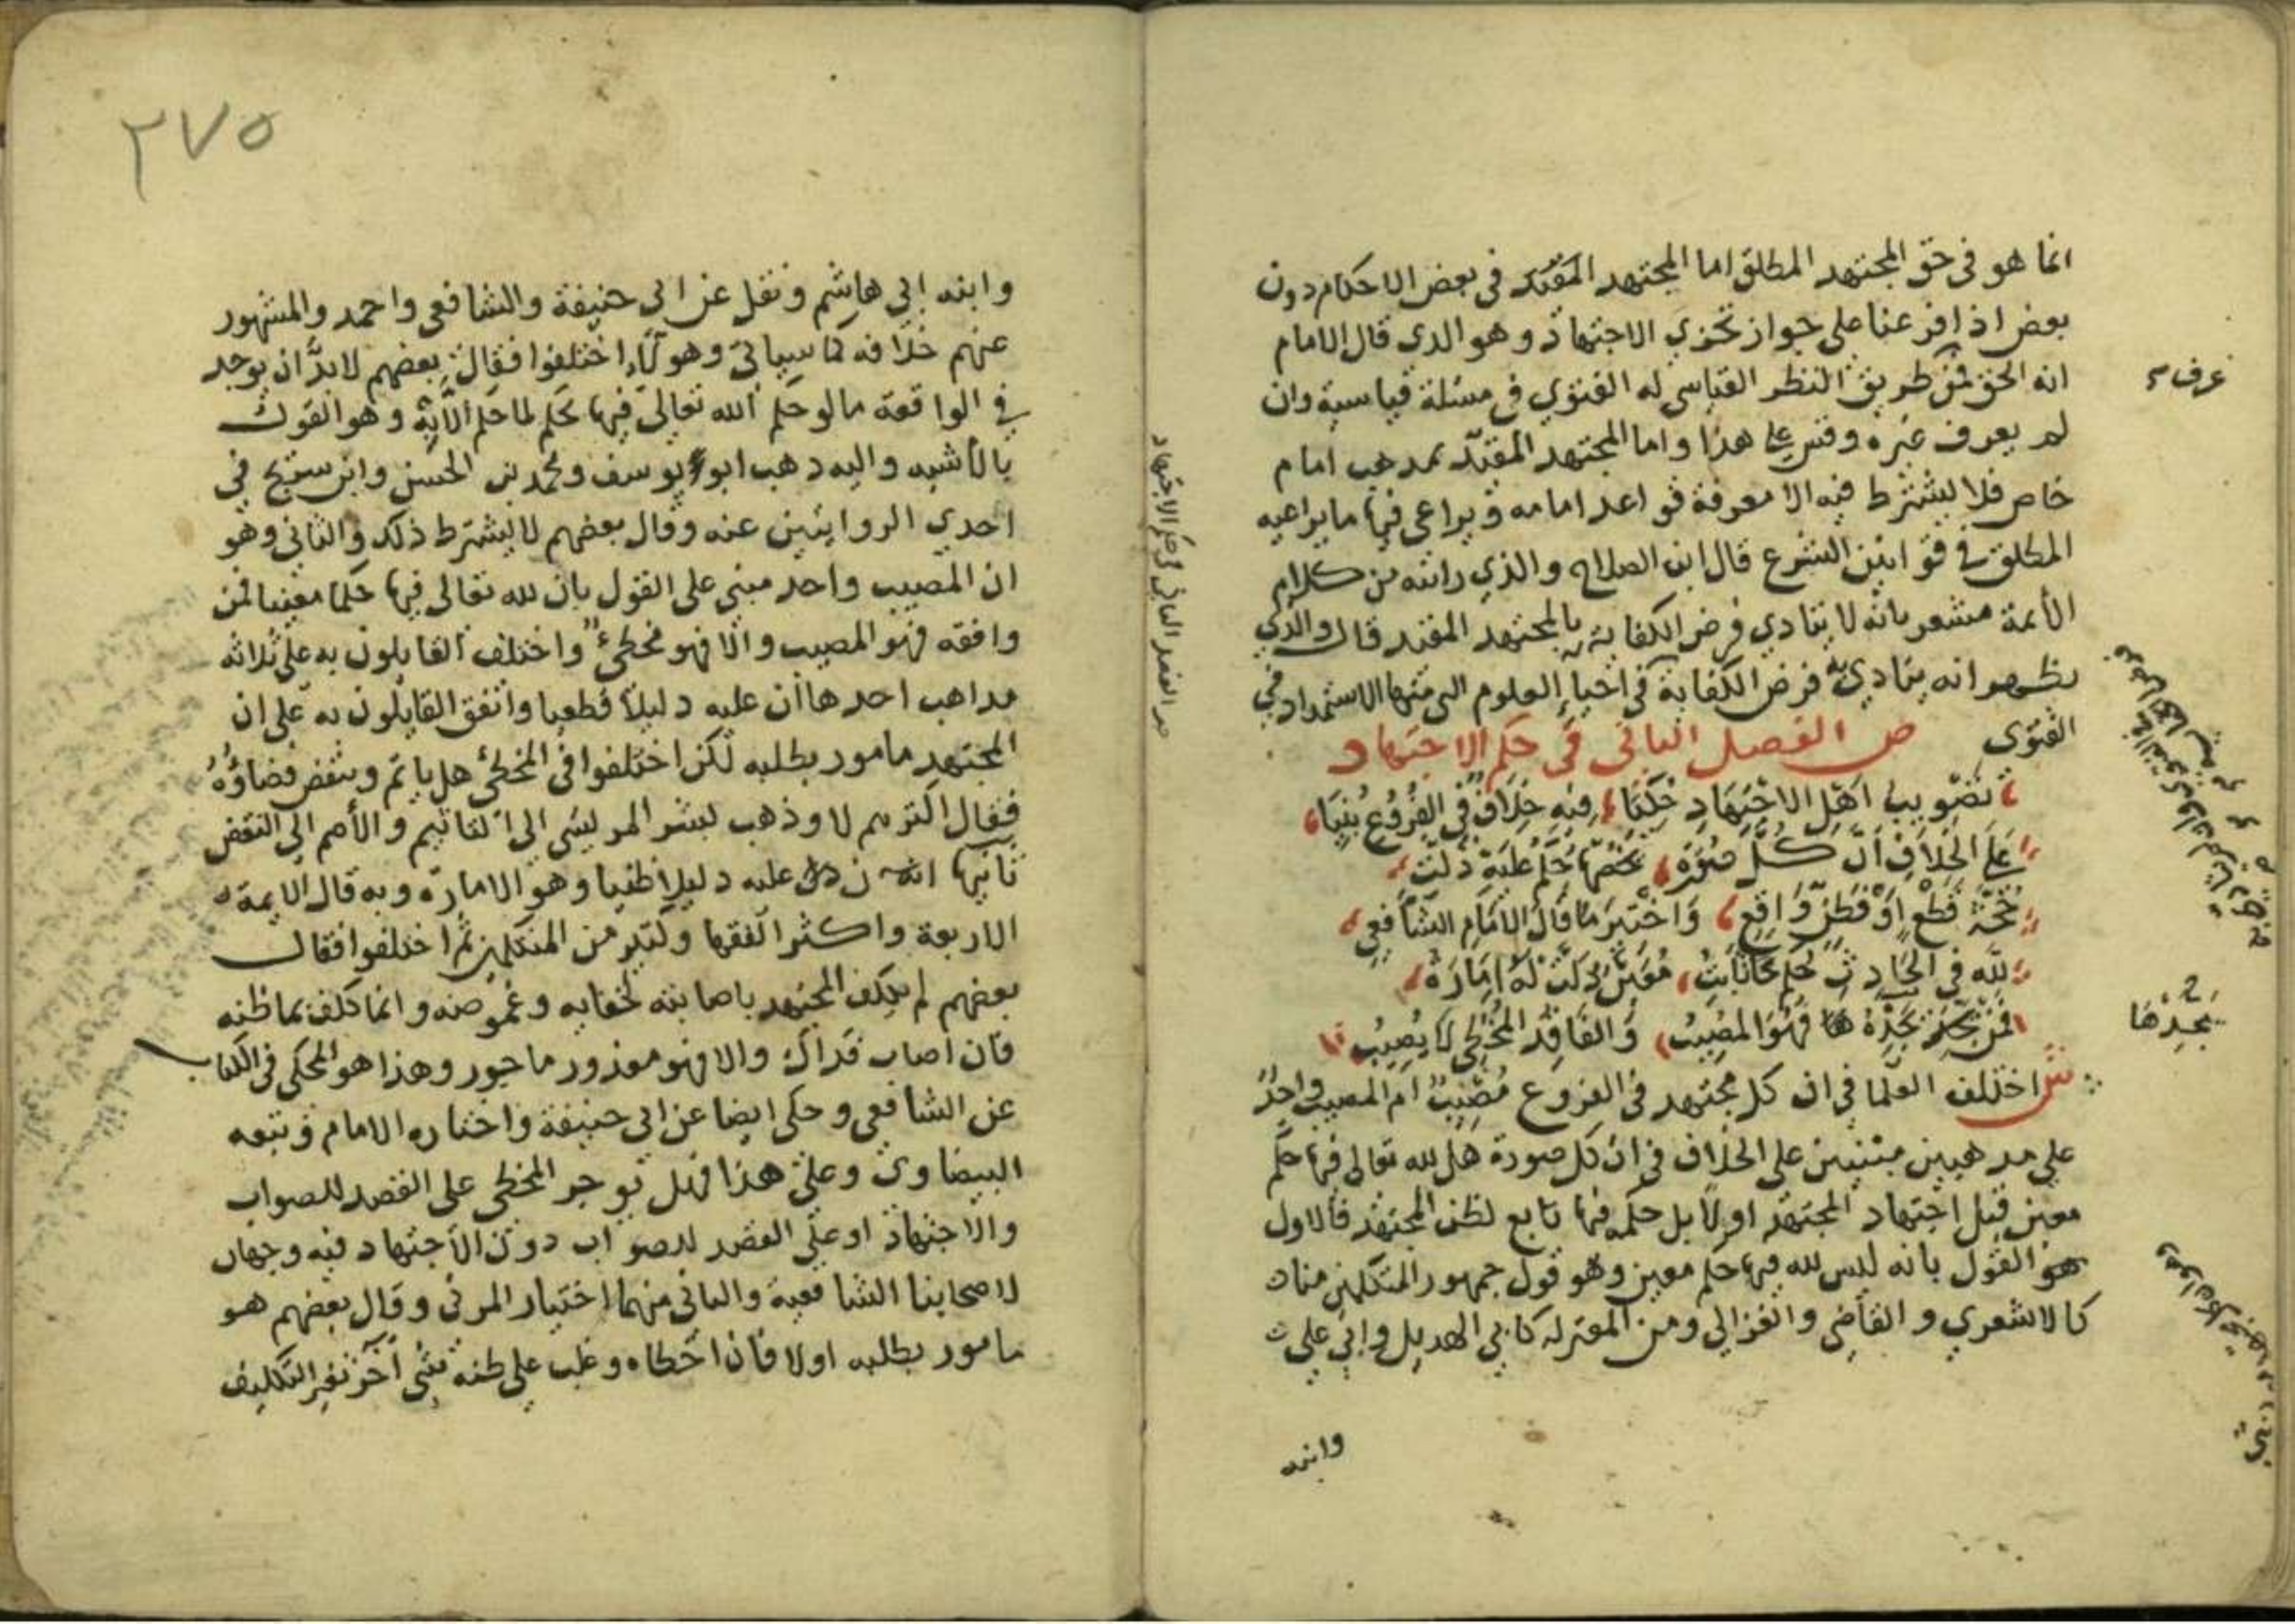 انما هو فى حق المجتهد المطلق اما المجتهد المقيد فى بعض الاحكام دون
بعض اذا فرعنا على جواز تجزي الاجتهاد وهو الذى قال الامام
انه الحق فمن طريق النظر القياسى له الفتوي فى مسئلة قياسية وان
عرف
لم يعرف غيره وقس على هذا واما المجتهد المقيد بمذهب امام
خاص فلا يشترط فيه الا معرفة قواعد امامه ويراعى فيها ما يراعيه
المطلق فى قوانين الشرع قال ابن الصلاح والذي رايته من كلام
الأئمة مشعر بانه لا يتادي فرض الكفاية بالمجتهد المقيد قال والذي
يظهر انه يتادي به فرض الكفاية فى احياء العلوم التى منها الاستمداد فى
الفتوي
ص الفصل الثانى فى حكم الاجتهاد
تَصْوِيبُ اَهْلِ الاجْتِهَادِ حُكِيَا فِيهِ خِلَافٌ فِى الفُرُوعِ بُنِيَا
عَلَى الخِلَافِ اَنَّ كُلَّ صُورَة يخصّهَا حُكْمٌ عَلَيْهِ دَلَّتْ
حُجَّة قَطْعٍ اَوْ فَظَنٍّ وَاقِعِ وَاخْتِيرَ مَا قَالَ الامَامُ الشَّافِعِى
لِلّه فِى الحَادِثِ حُكْم ثَابِتُ مُعَيَّن دَلَّتْ لَهُ اِمَارَةُ
فَمَنْ يَجِدْهَا فَهُوَ المُصِيبُ وَالفَاقِدُ المُخْطِى لَا يُصِيبُ
يَجِدْهَا
ش اختلف العلما فى ان كل مجتهد فى الفروع مُصِيبٌ ام المصيب واحدٌ
على مذهبين مبنيين على الخلاف فى ان كل صورة هل لله تعالى فيها حكم
معين قبل اجتهاد المجتهد او لا بل حكمه فيها تابع لظن المجتهد فالاول
هو القول بانه ليس لله فيها حكم معين وهو قول جمهور المتكلمين منا
كالاشعري والقاضى والغزالى ومن المعتزله كابى الهذيل وابى على
وابنه
صر الفصل الثانى فى حكم الاجتهاد
٢٧٥
وابنه ابى هاشم ونقل عن ابى حنيفة والشافعى واحمد والمشهور
عنهم خلافه كما سياتى وهولاء اختلفوا فقال بعضهم لابد ان يوجد
فى الواقعة ما لو حكم الله تعالى فيها بحكم لما حكم الا به وهو القول
بالاشبه واليه ذهب ابو يوسف ومحمد بن الحسن وابن سريج فى
احدي الروايتين عنه وقال بعضهم لا يشترط ذلك والثانى وهو
ان المصيب واحد مبنى على القول بان لله تعالى فيها حكما معينا فمن
وافقه فهو المصيب والا فهو مخطئ واختلف القايلون به على ثلاثه
مذاهب احدها ان عليه دليلا قطعيا واتفق القايلون به على ان
المجتهد مامور بطلبه لكن اختلفوا فى المخطئ هل ياثم وينقض قضاؤه
فقال اكثرهم لا وذهب بشر المريسى الى التاثيم والأصم الى النقض
ثانيها ان عليه دليلا ظنيا وهو الامارة وبه قال الايمة
الاربعة واكثر الفقها وكثير من المتكلمين ثم اختلفوا فقال
بعضهم لم يكلف المجتهد باصابته لخفايه وغموضه وانما كلف بما ظنه
فان اصاب فذاك والا فهو معذور ماجور وهذا هو المحكى فى الكتاب
عن الشافعى وحكى ايضا عن ابى حنيفة واختاره الامام وتبعه
البيضاوى وعلى هذا فهل يوجر المخطى على القصد للصواب
والاجتهاد او على القصد للصواب دون الاجتهاد فيه وجهان
لاصحابنا الشافعية والثانى منهما اختيار المزنى وقال بعضهم هو
مامور بطلبه اولا فان اخطاه وغلب على ظنه شئ آخر تغير التكليف